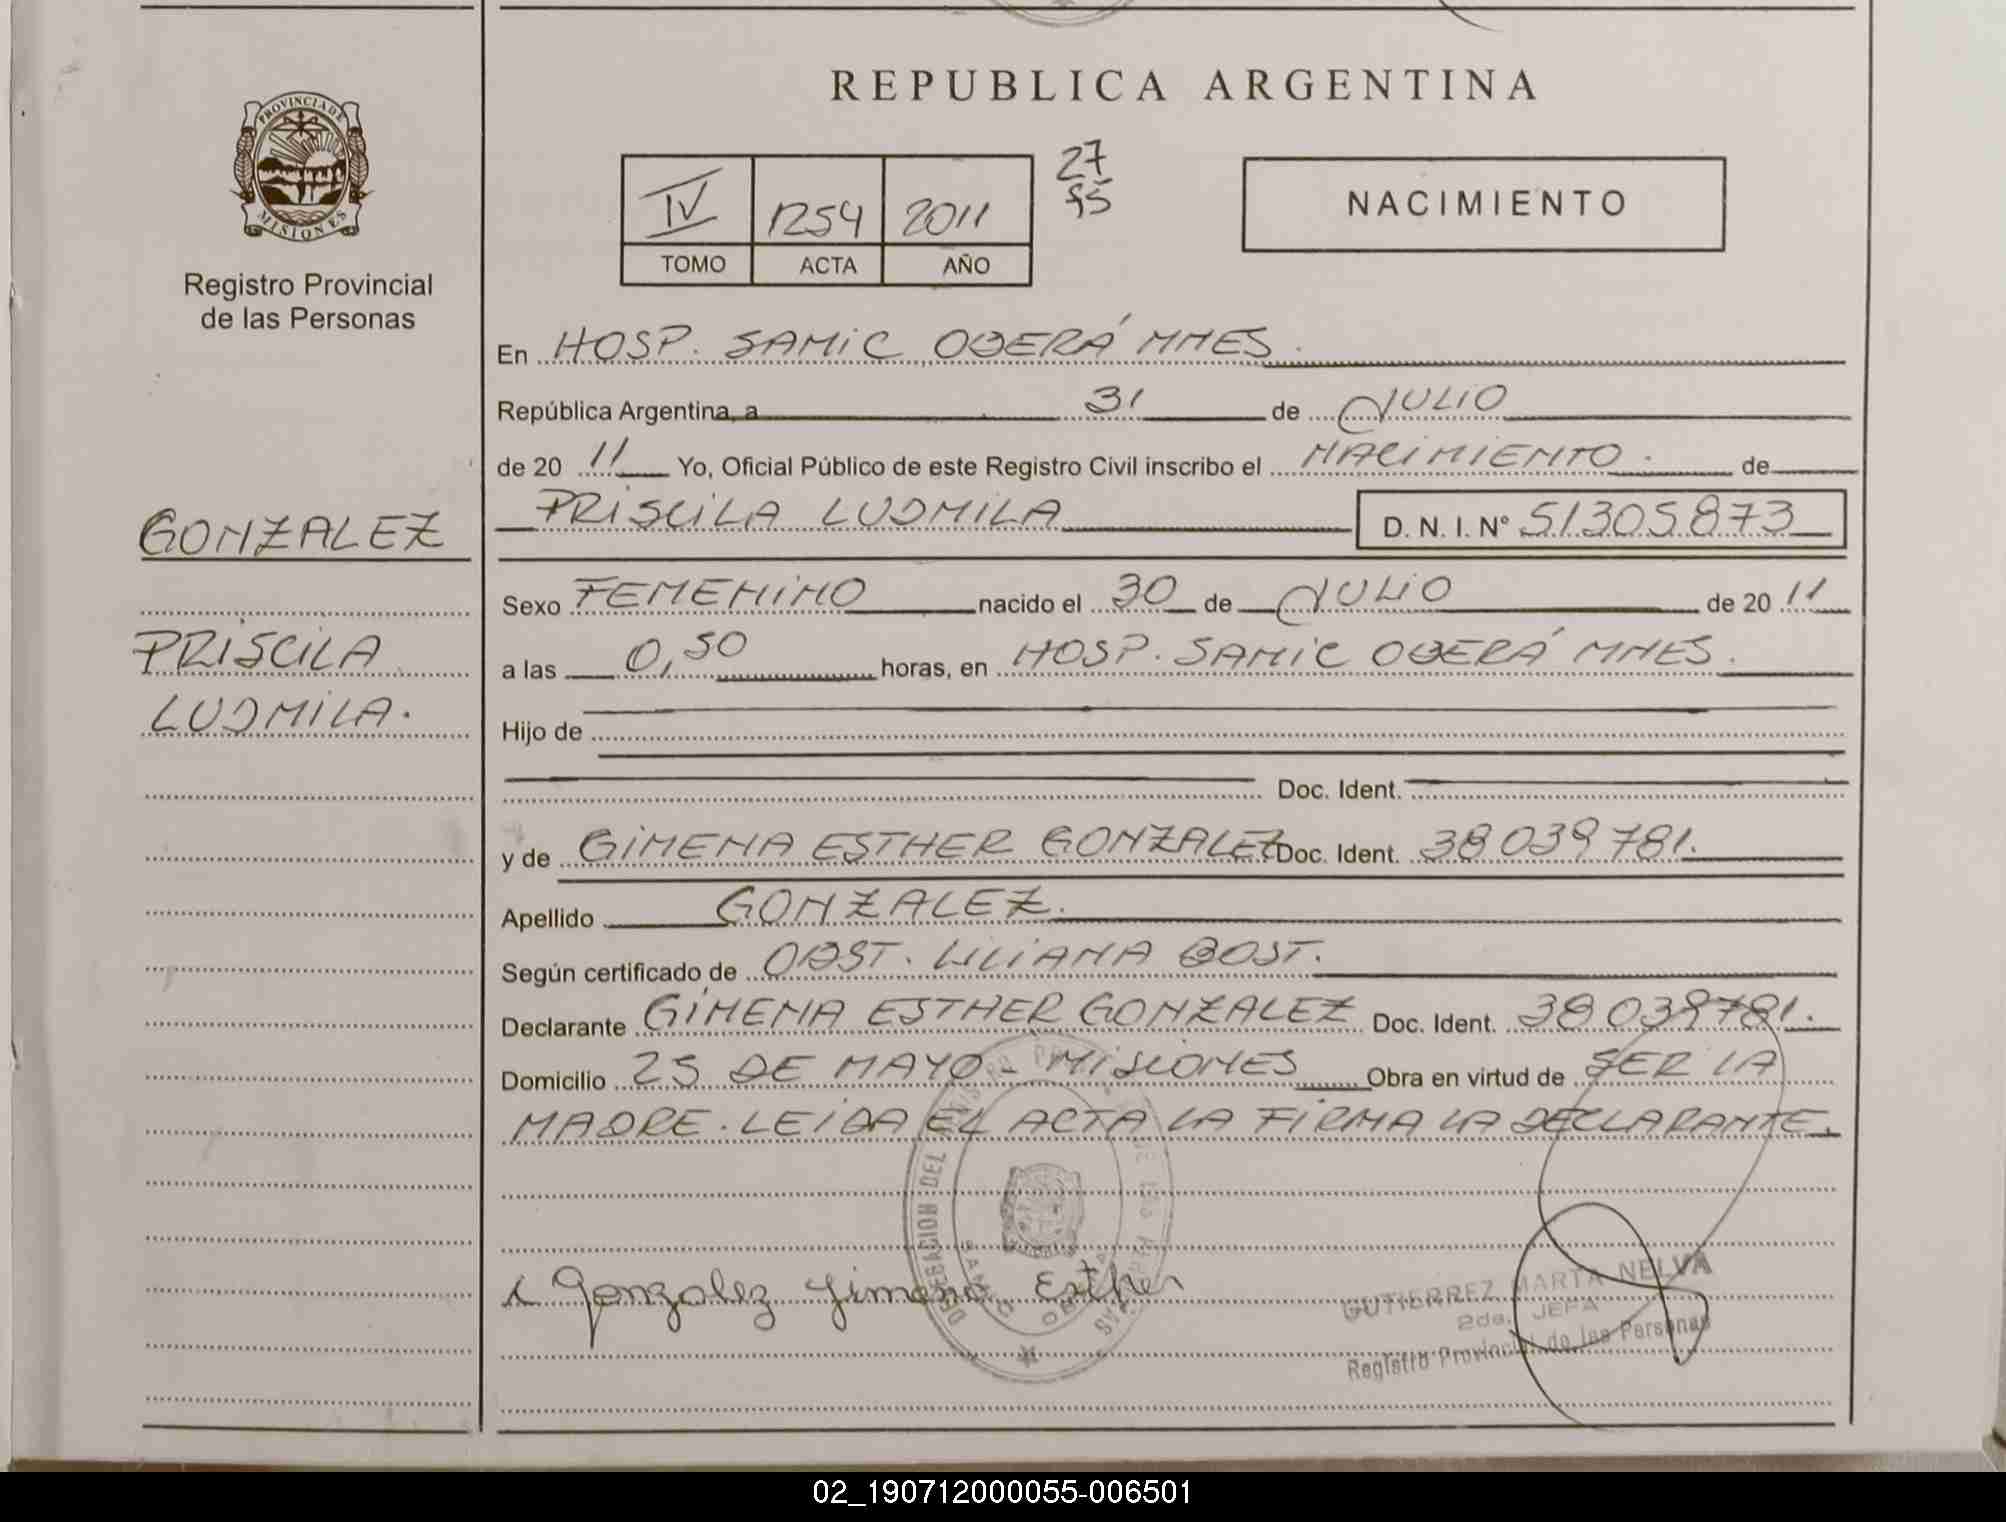 REPUBLICA ARGENTINA
PROVINCIA DE
MISIONES
Registro Provincial
de las Personas
IV 1254 2011
TOMO ACTA AÑO
27
NACIMIENTO
En HOSP. SAMIC OBERÁ MNES.
República Argentina, a 31 de JULIO
de 20 11 Yo, Oficial Público de este Registro Civil inscribo el NACIMIENTO. de
PRISCILA LUDMILA D. N. I. Nº 51305873
GONZALEZ
PRISCILA
LUDMILA.
Sexo FEMENINO nacido el 30 de JULIO de 20 11
a las 0,50 horas, en HOSP. SAMIC OBERÁ MNES.
Hijo de
Doc. Ident.
y de GIMENA ESTHER GONZALEZ Doc. Ident. 38 039 781.
Apellido GONZALEZ.
Según certificado de OBST. LILIANA BOST.
Declarante GIMENA ESTHER GONZALEZ Doc. Ident. 38 039781.
Domicilio 25 DE MAYO - MISIONES Obra en virtud de SER LA
MADRE. LEIDA EL ACTA LA FIRMA LA DECLARANTE.
DELEGACION DEL
Gonzalez Jimena Esther
GUTIERREZ MARTA NELVA
2da. JEFA
Registro Provincial de las Personas
02_190712000055-006501